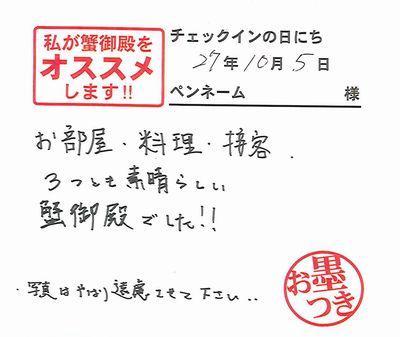 私が蟹御殿を
オススメ
します!!
チェックインの日にち
27年10月5日
ペンネーム 様
お部屋・料理・接客.
3つとも素晴らしい
蟹御殿でした!!
・写真はやはり遠慮させて下さい..
お墨つき